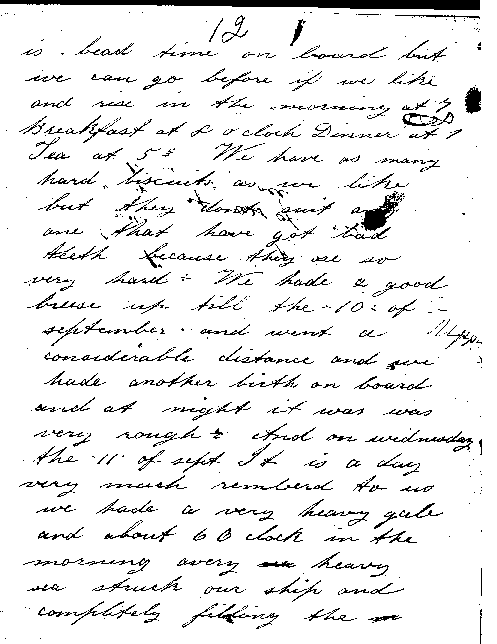 12
is bead time on board but
we can go before if we like
and rise in the morning at 7
Breakfast at 8 o clock Dinner at 1
Tea at 5 We have as many
hard biscuits as we like
but they dont suit any
one that have got bad
teeth because they are so
very hard We hade a good
breese up till the 10 of
september and went a
considerable distance and we
hade another birth on board
and at night it was was
very rough And on wednesday
the 11 of sept It is a day
very much remberd to us
we hade a very heavy gale
and about 6 O clock in the
morning avery heavy
sea struck our ship and
completely filling the